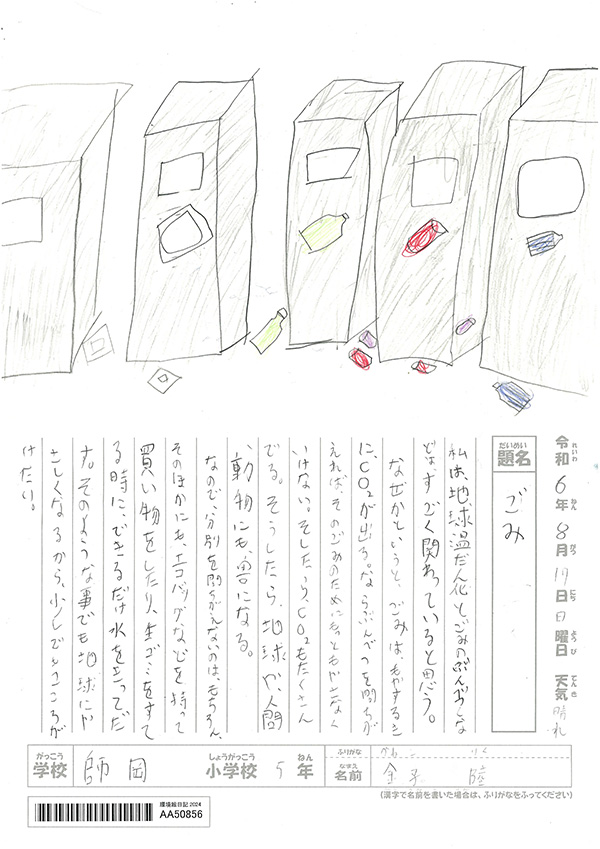 令和6年8月18日日曜日 天気 晴れ
れいわ ねん がつ にち にち ようび てんき
題名 ごみ
だいめい
私は、地球温だん化とごみのぶんべつな
どは、すごく関わっていると思う。
なぜかというと、ごみは、もやすとき
に、CO2が出ろ。ならぶんべつを間ちが
えれば、そのごみのためにもっともやさなく
いけない。そしたら、CO2もたくさん
でる。そうしたら、地球や、人間
、動物にも、害になる。
なので、分別を間ちがえないのは、もちろん、
そのほかにも、エコバッグなどを持って
買い物をしたり、生ゴミをすて
る時に、できるだけ水を立ってだ
す。そのような事でも地球にや
さしくなるから、少しでもこころが
けたい。
がっこう しょうがっこう ねん ふりがな かねこ りく
学校 師岡 小学校 5年 なまえ 名前 金子 陸
(漢字で名前を書いた場合は、ふりがなをふってください)
環境絵日記 2024
AA50856